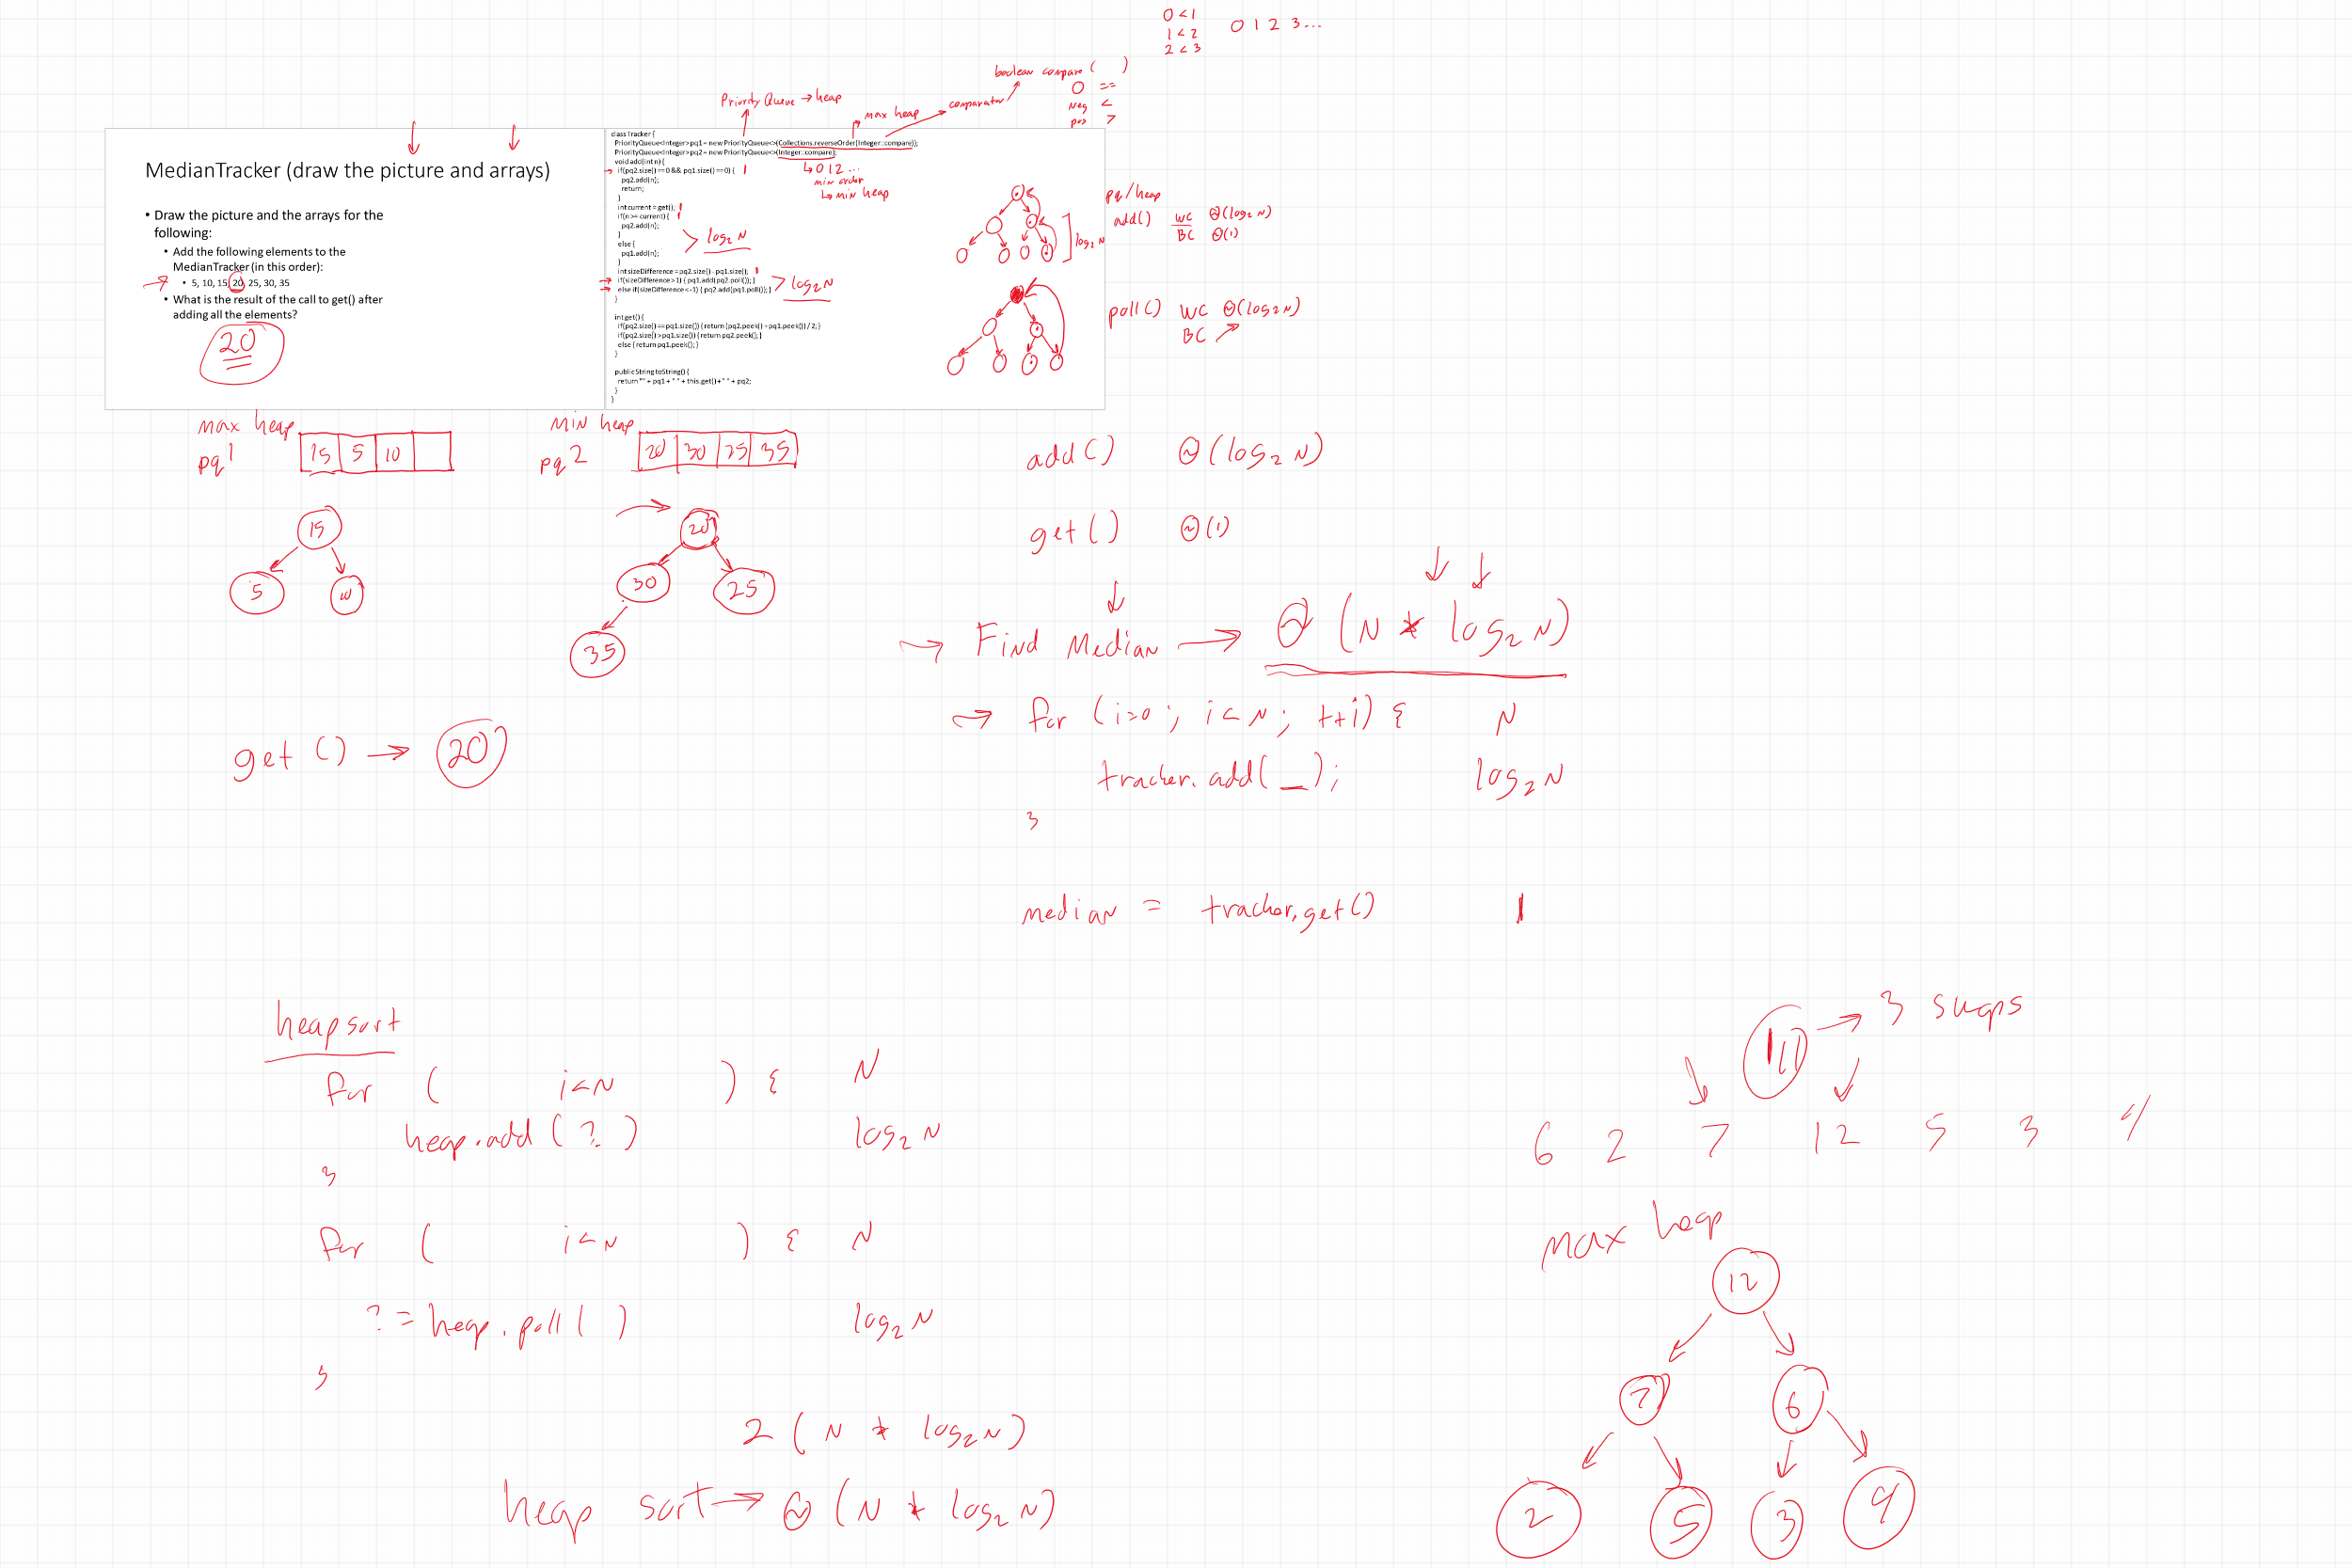 0 < 1
1 < 2
2 < 3
0 1 2 3 ...
boolean compare ( )
0 ==
Neg <
pos >
Priority Queue → heap
max heap
comparator
MedianTracker (draw the picture and arrays)
• Draw the picture and the arrays for the
following:
• Add the following elements to the
MedianTracker (in this order):
• 5, 10, 15, 20, 25, 30, 35
• What is the result of the call to get() after
adding all the elements?
20
class Tracker {
PriorityQueue<Integer> pq1 = new PriorityQueue<>(Collections.reverseOrder(Integer::compare));
PriorityQueue<Integer> pq2 = new PriorityQueue<>(Integer::compare);
void add(int n) {
if(pq2.size() == 0 && pq1.size() == 0) { 1
pq2.add(n);
return;
}
int current = get(); 1
if(n >= current) { 1
pq2.add(n);
}
else {
pq1.add(n);
}
int sizeDifference = pq2.size() - pq1.size(); 1
if(sizeDifference > 1) { pq1.add(pq2.poll()); }
else if(sizeDifference < -1) { pq2.add(pq1.poll()); }
}
int get() {
if(pq2.size() == pq1.size()) { return (pq2.peek() + pq1.peek()) / 2; }
if(pq2.size() > pq1.size()) { return pq2.peek(); }
else { return pq1.peek(); }
}
public String toString() {
return "" + pq1 + " " + this.get() + " " + pq2;
}
}
↳ 0 1 2 ...
min order
↳ min heap
> log₂ N
> log₂ N
] log₂ N
pq / heap
add() WC Θ(log₂ N)
BC Θ(1)
poll() WC Θ(log₂ N)
BC ↗
max heap
pq1
15 5 10
min heap
pq2
20 30 25 35
15
5 10
20
30 25
35
get () → 20
add() Θ(log₂ N)
get() Θ(1)
→ Find Median → Θ (N * log₂ N)
→ for (i=0; i<N; ++i) { N
tracker.add(_); log₂ N
}
median = tracker.get() 1
heap sort
for ( i<N ) { N
heap.add ( ? ) log₂ N
}
for ( i<N ) { N
? = heap.poll( ) log₂ N
}
2 ( N * log₂ N )
heap sort → Θ ( N * log₂ N )
→ 3 swaps
6 2 7 12 5 3 4
max heap
12
7 6
2 5 3 4